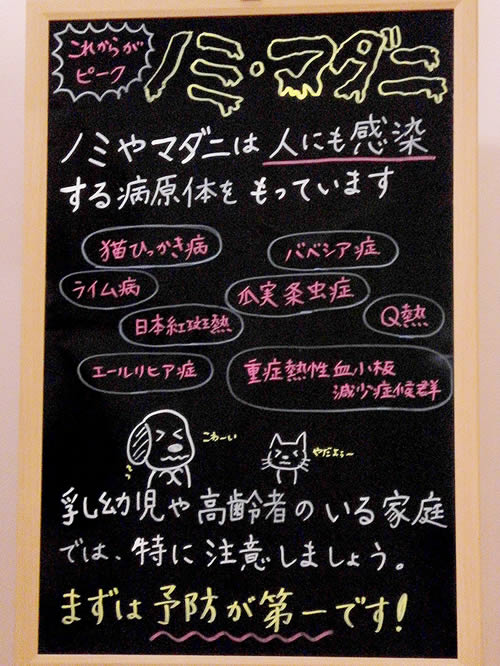 これからが
ピーク
ノミ・マダニ
ノミやマダニは人にも感染
する病原体をもっています
猫ひっかき病
バベシア症
ライム病
瓜実条虫症
日本紅斑熱
Q熱
エールリヒア症
重症熱性血小板
減少症候群
こわーい
やだよぅ〜
乳幼児や高齢者のいる家庭
では、特に注意しましょう。
まずは予防が第一です!